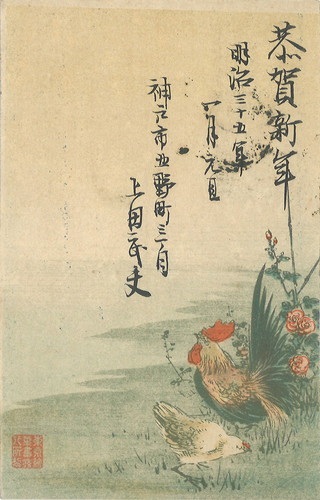 恭賀新年
明治三十五年
一月元旦
神戸市野町三丁目
上田